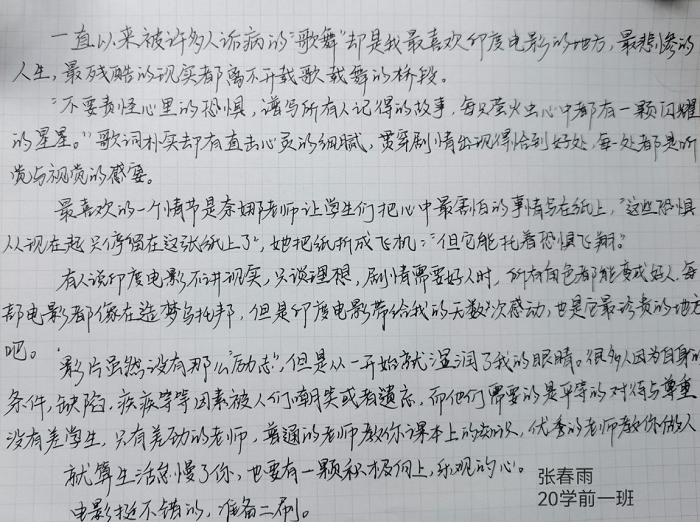 一直以来被许多人诟病的“歌舞”却是我最喜欢印度电影的地方，最悲惨的
人生，最残酷的现实都离不开载歌载舞的桥段。
“不要责怪心里的恐惧，谱写所有人记得的故事，每只萤火虫心中都有一颗闪耀
的星星。”歌词朴实却有直击心灵的细腻，贯穿剧情出现得恰到好处，每一处都是听
觉与视觉的盛宴。
最喜欢的一个情节是奈娜老师让学生们把心中最害怕的事情写在纸上，“这些恐惧
从现在起只停留在这张纸上了”，她把纸折成飞机：“但它能托着恐惧飞翔。”
有人说印度电影不讲现实，只谈理想，剧情需要好人时，所有角色都能变成好人，每
部电影都像在造梦乌托邦，但是印度电影带给我的无数次感动，也是它最珍贵的地方
吧。
影片虽然没有那么“励志”，但是从一开始就湿润了我的眼睛。很多人因为自身的
条件，缺陷，疾疾等等因素被人们嘲笑或者遗忘，而他们需要的是平等的对待与尊重
没有差学生，只有差劲的老师，普通的老师教你课本上的知识，优秀的老师教你做人
就算生活怠慢了你，也要有一颗积极向上，乐观的心。
电影挺不错的，准备二刷。
张春雨
20学前一班